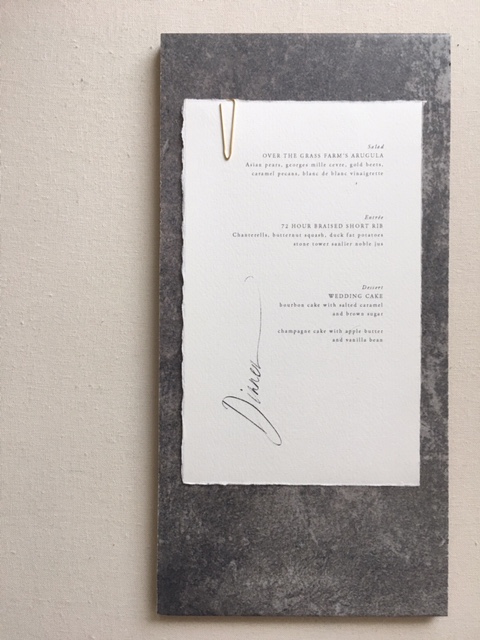 Salad
OVER THE GRASS FARM'S ARUGULA
Asian pears, georges mille cevre, gold beets,
caramel pecans, blanc de blanc vinaigrette
Entrée
72 HOUR BRAISED SHORT RIB
Chanterells, butternut squash, duck fat potatoes
stone tower saulier noble jus
Dessert
WEDDING CAKE
bourbon cake with salted caramel
and brown sugar
champagne cake with apple butter
and vanilla bean
Dinner